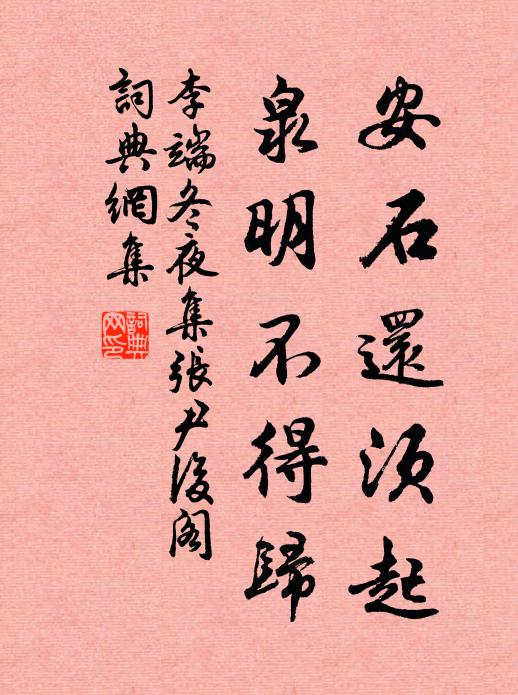 安石還須起
泉明不得歸
李端冬夜集張尹後閣
詞典網集
詞典網印